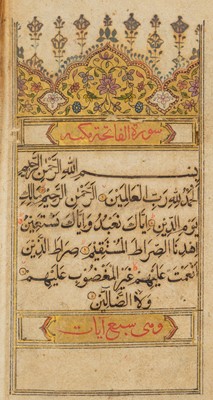 سورة الفاتحة مكية
بسم الله الرحمن الرحيم
الحمد لله رب العالمين الرحمن الرحيم مالك
يوم الدين اياك نعبد واياك نستعين
اهدنا الصراط المستقيم صراط الذين
انعمت عليهم غير المغضوب عليهم
ولا الضالين
وهي سبع آيات